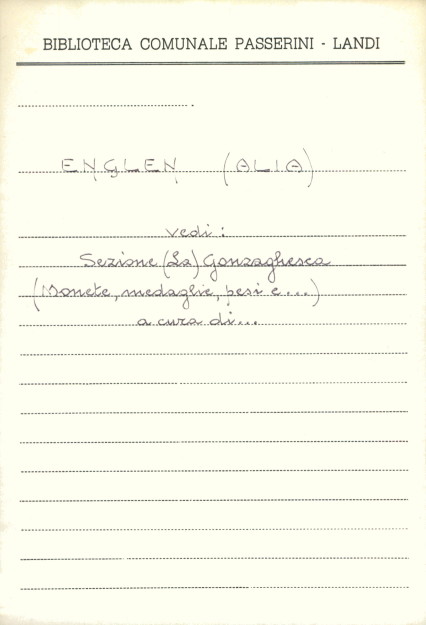 BIBLIOTECA COMUNALE PASSERINI - LANDI
ENGLEN (ALIA)
vedi:
Sezione (La) Gonzaghesca
(Monete, medaglie, pesi e...)
a cura di...